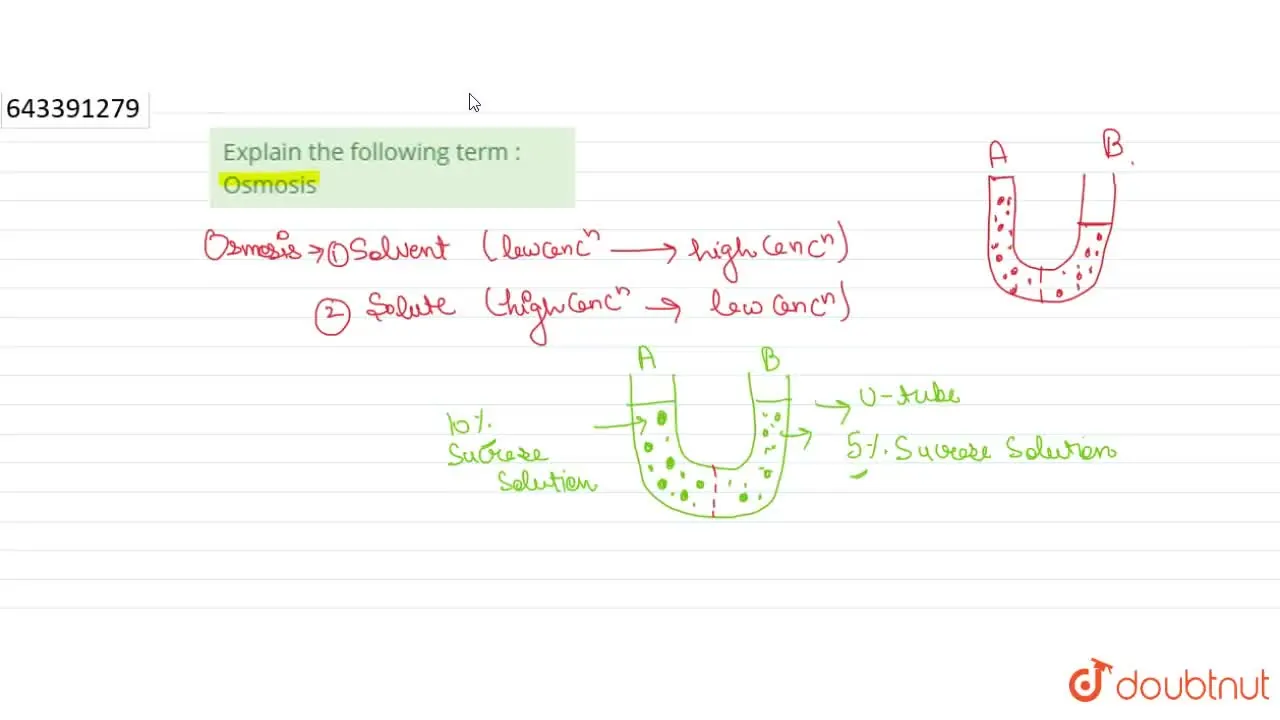 643391279
Explain the following term :
Osmosis
A B
Osmosis → ① Solvent (low concⁿ → high concⁿ)
② Solute (high concⁿ → low concⁿ)
A B
→ U-tube
10%. Sucrose Solution
5%. Sucrose Solution
doubtnut